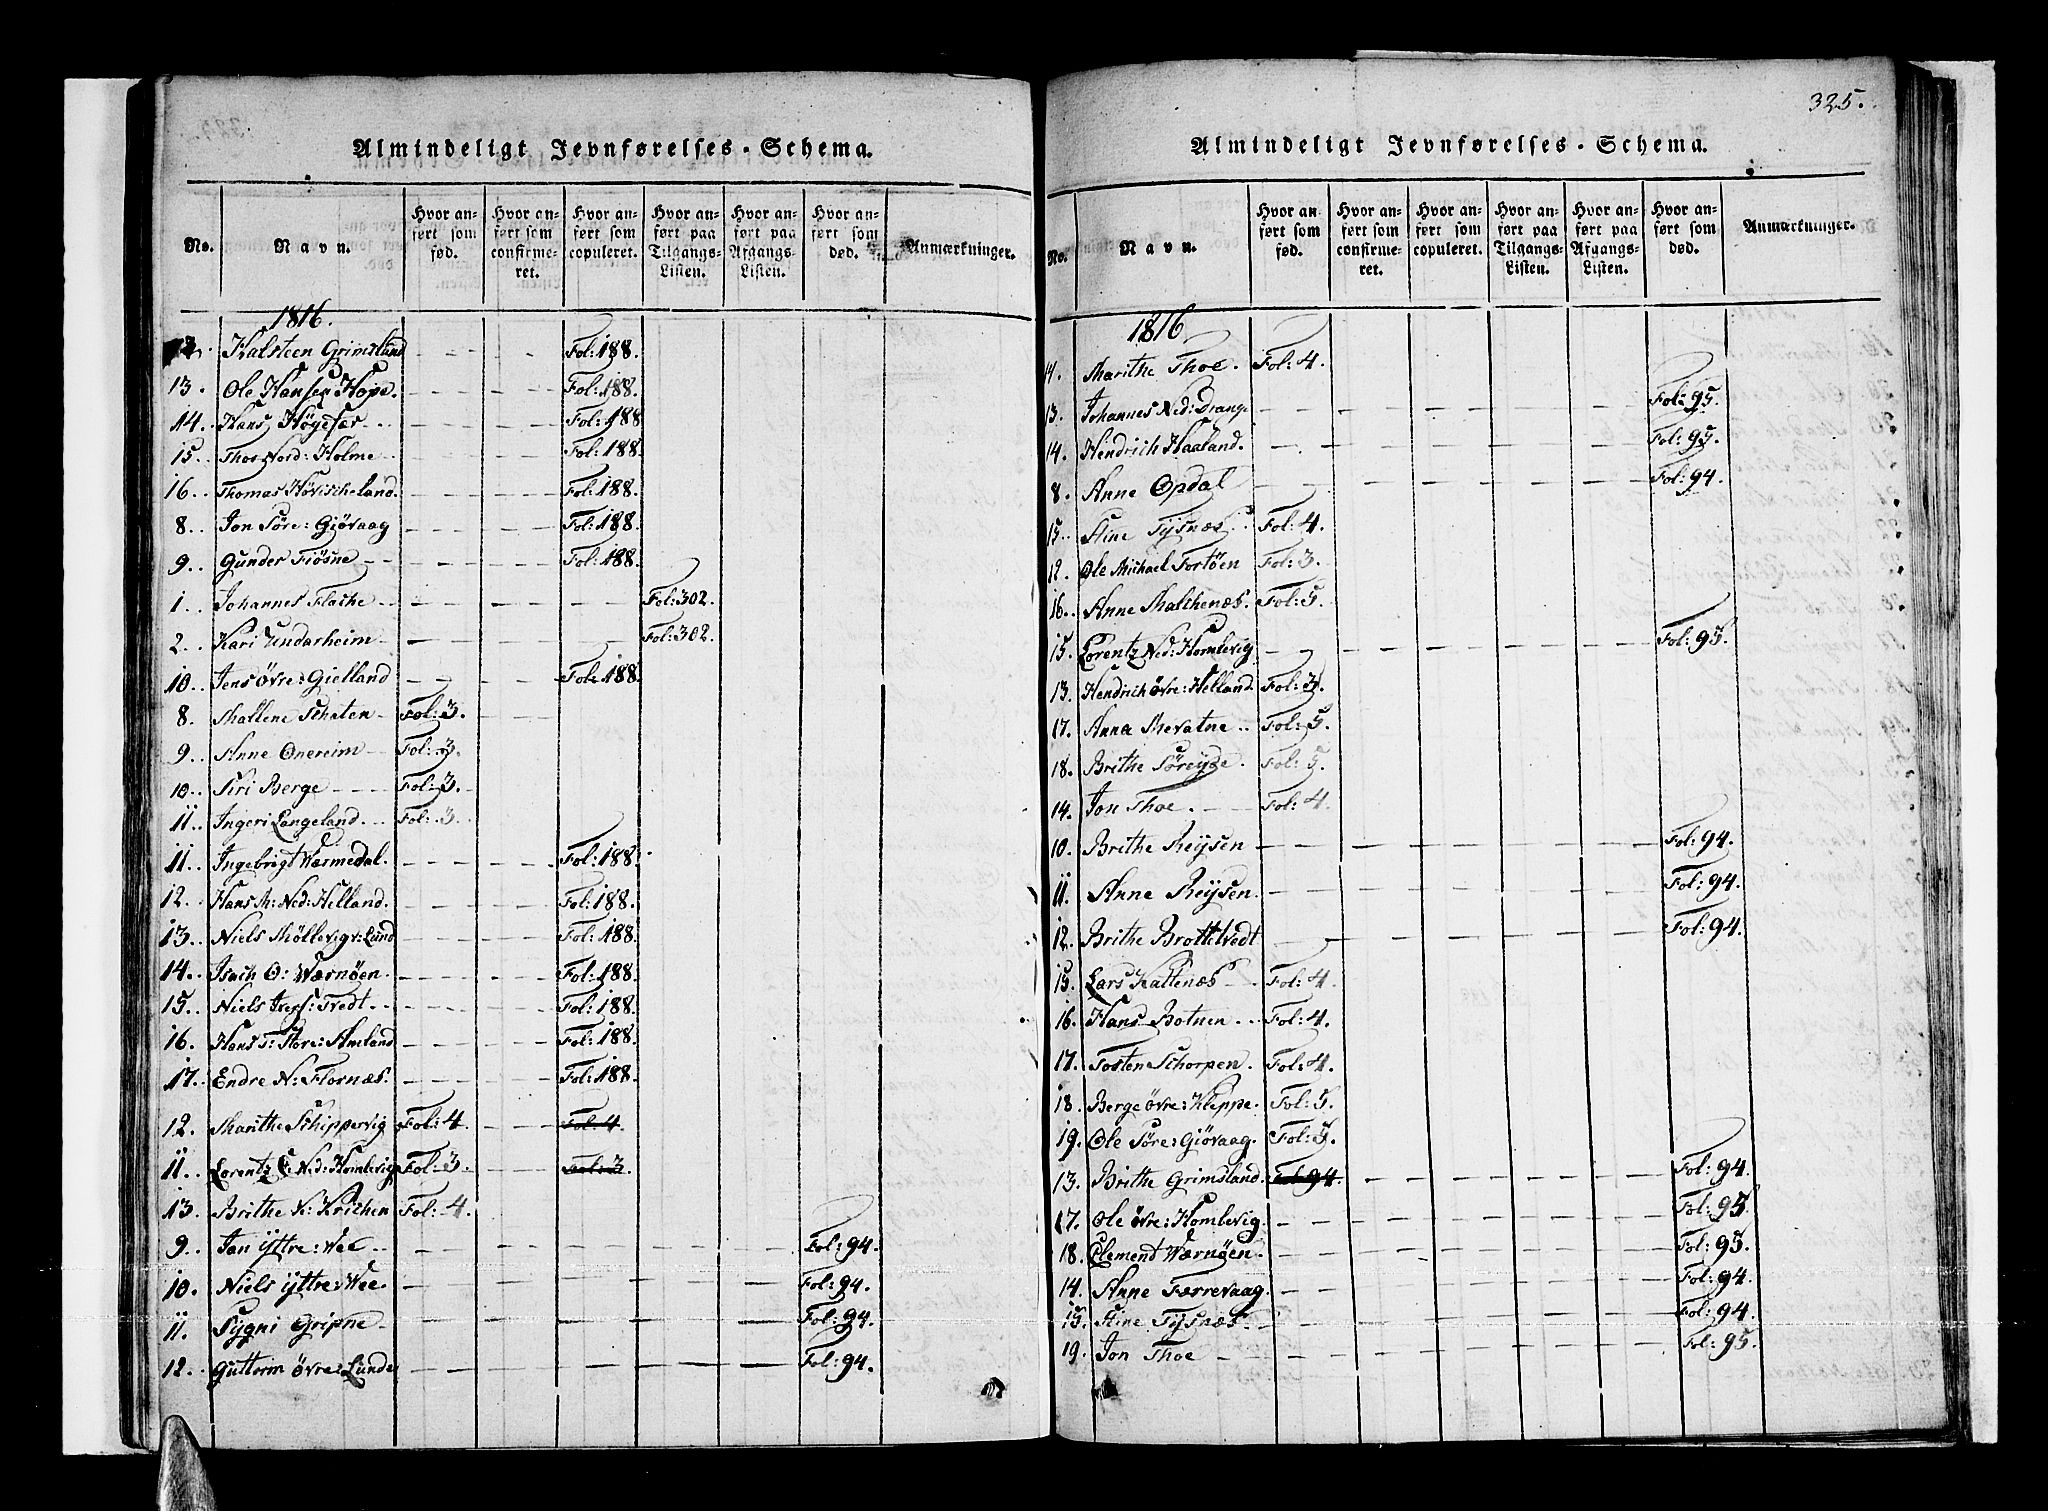 Almindeligt Jevnførelses-Schema.
No. Navn. Hvor anført som fød. Hvor anført som confirmeret. Hvor anført som copuleret. Hvor anført paa Tilgangs-Listen. Hvor anført paa Afgangs-Listen. Hvor anført som død. Anmærkninger.
1816.
Halsteen Grimsland Fol: 188.
13. Ole Hansen Hope. Fol: 188.
14. Hans Högefær Fol: 188
15. Thor Nord: Holme Fol: 188.
16. Thomas Hövischeland. Fol: 188.
8. Jon Söre: Giövaag Fol: 188.
9. Gunder Fiösne Fol: 188.
1. Johannes Flathe Fol: 302.
2. Kari Undarheim Fol: 302.
10. Jens övre: Gielland Fol: 188.
8. Mallene Schaten Fol: 3.
9. Anne Onereim Fol: 3.
10. Siri Berge Fol: 3.
11. Ingeri Langeland Fol: 3.
11. Ingebrigt Wærmedal. Fol: 188.
12. Hans M: Ned: Helland. Fol: 188.
13. Niels Möllevig v: Lund Fol: 188.
14. Isach O: Wærnöen. Fol: 188.
15. Niels Ivers: Tvedt Fol: 188.
16. Hans T: Store: Amland Fol: 188.
17. Endre N: Flornæs. Fol: 188.
12. Marithe Schippervig Fol: 4 Fol: 4
11. Lorentz C: Ned: Homlevig Fol: 3 Fol: 3
13. Brithe K: Krichen Fol: 4.
9. Jan ijttre: Wee Fol: 94.
10. Niels ijttre: Wee. Fol: 94.
11. Sygni Gripne Fol: 94.
12. Guttorm övre: Lunde Fol: 94.
325.
Almindeligt Jevnførelses-Schema.
No. Navn. Hvor anført som fød. Hvor anført som confirmeret. Hvor anført som copuleret. Hvor anført paa Tilgangs-Listen. Hvor anført paa Afgangs-Listen. Hvor anført som død. Anmærkninger.
1816
Marithe Thoe. Fol: 4.
13. Johannes Ned: Drange Fol: 95.
14. Hendrich Haaland. Fol: 95.
8. Anne Opdal Fol: 94.
15. Stine Tijsnæs. Fol: 4.
12. Ole Michael Fortöen Fol: 3.
16. Anne Malthenæs. Fol: 5.
15. Lorentz Ned: Homlevig Fol: 95.
13. Hendrich övre: Helland. Fol: 3.
17. Anna Mevatne Fol: 5.
18. Brithe Söreyde. Fol: 5.
14. Jon Thoe. Fol: 4
10. Brithe Reijsen Fol: 94.
11. Anne Reijsen. Fol: 94.
12. Brithe Brottetvedt Fol: 94.
15. Lars Kaltenæs Fol: 4.
16. Hans Botnen Fol: 4.
17. Tosten Schorpen. Fol: 4.
18. Berge övre: Kleppe. Fol: 5.
19. Ole Söre: Giövaag. Fol: 5.
13. Brithe Grimsland. Fol: 94. Fol: 94.
17. Ole övre: Homlevig. Fol: 95.
18. Clement Wærnöen. Fol: 95.
14. Anne Færrevaag. Fol: 94.
15. Stine Tijsnæs. Fol: 94.
19. Jon Thoe Fol: 95.